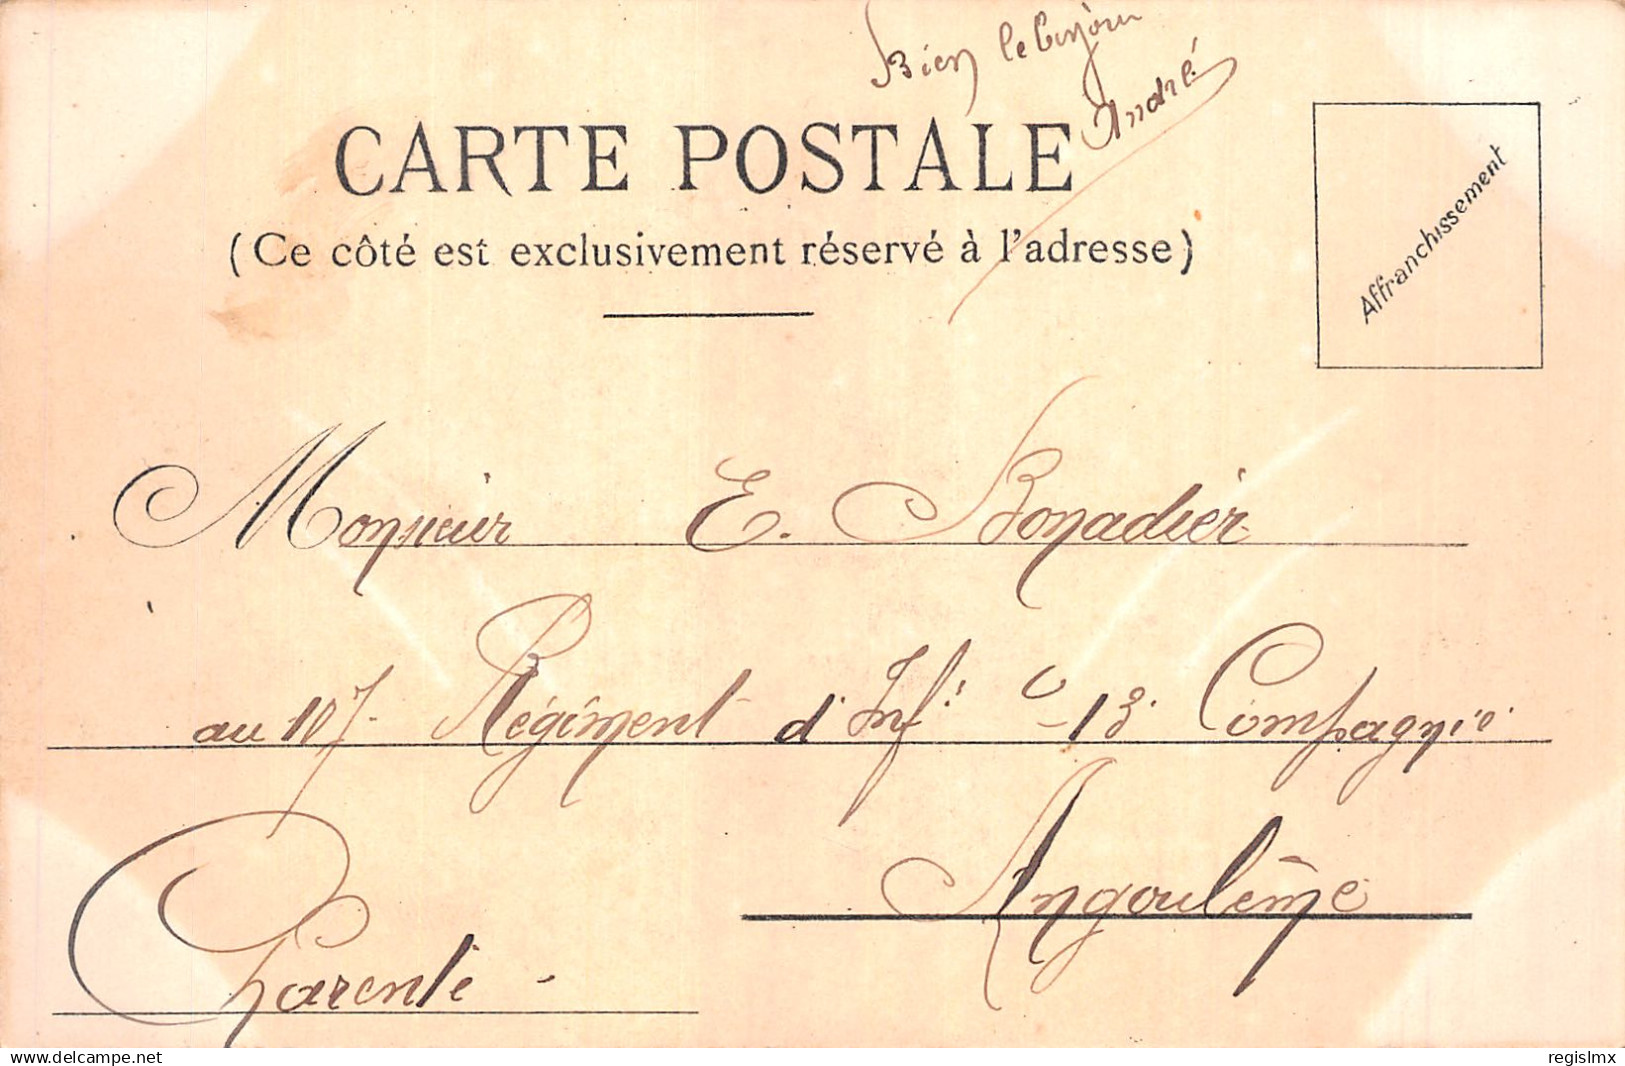 Bien le bonjour
André
CARTE POSTALE
(Ce côté est exclusivement réservé à l'adresse)
Affranchissement
Monsieur E. Bonadier
au 107 Régiment d'Inf: 13 Compagnie
Angoulême
Charente -
www.delcampe.net
regislmx